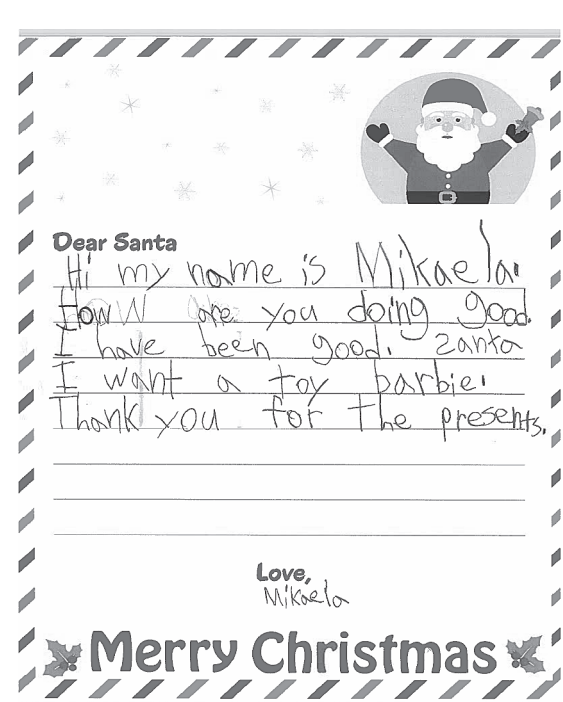 Dear Santa
Hi my name is Mikaela.
How are you doing good.
I have been good. Santa
I want a toy barbie.
Thank you for the presents.
Love,
Mikaela
Merry Christmas